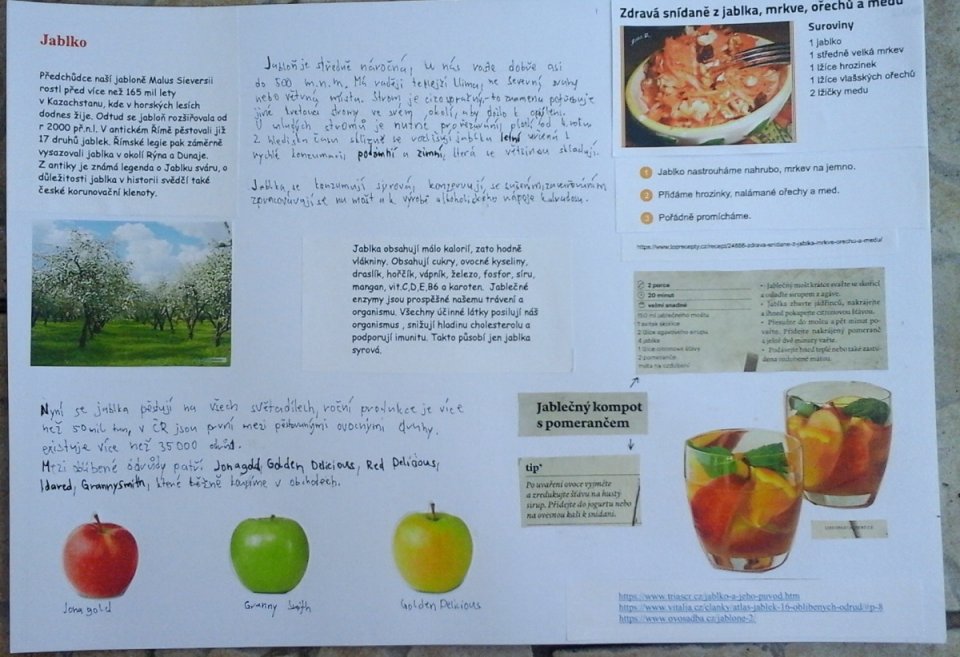 Jablko
Předchůdce naší jabloně Malus Sieversii
rostl před více než 165 mil lety
v Kazachstanu, kde v horských lesích
dodnes žije. Odtud se jabloň rozšiřovala od
r 2000 př.n.l. V antickém Římě pěstovali již
17 druhů jablek. Římské legie pak záměrně
vysazovali jablka v okolí Rýna a Dunaje.
Z antiky je známá legenda o Jablku sváru, o
důležitosti jablka v historii svědčí také
české korunovační klenoty.
Jabloň je středně náročná, u nás roste dobře asi
do 500 m.n.m. Má raději teplejší klima, ne severní svahy
nebo větrná místa. Strom je cizosprašný - to znamená potřebuje
jiné kvetoucí stromy ve svém okolí, aby došlo k opylení.
U mladých stromů je nutné prořezávání, plodí od 4. roku
Z hlediska času sklizně se rozlišují jablka letní určená k
rychlé konzumaci, podzimní a zimní, která se většinou skladují.
Jablka se konzumují syrová, konzervují se sušením, zavařováním
zpracovávají se na mošt a k výrobě alkoholického nápoje kalvadosu.
Jablka obsahují málo kalorií, zato hodně
vlákniny. Obsahují cukry, ovocné kyseliny,
draslík, hořčík, vápník, železo, fosfor, síru,
mangan, vit.C,D,E,B6 a karoten. Jablečné
enzymy jsou prospěšné našemu trávení a
organismu. Všechny účinné látky posilují náš
organismus , snižují hladinu cholesterolu a
podporují imunitu. Takto působí jen jablka
syrová.
Nyní se jablka pěstují na všech světadílech, roční produkce je více
než 50 mil tun, v ČR jsou první mezi pěstovanými ovocnými druhy.
existuje více než 35 000 odrůd.
Mezi oblíbené odrůdy patří Jonagold, Golden Delicious, Red Delicious,
Idared, Grannysmith, které běžně koupíme v obchodech.
Jonagold
Granny Smith
Golden Delicious
Zdravá snídaně z jablka, mrkve, ořechů a medu
Suroviny
1 jablko
1 středně velká mrkev
1 lžíce hrozinek
1 lžíce vlašských ořechů
2 lžičky medu
1 Jablko nastrouháme nahrubo, mrkev na jemno.
2 Přidáme hrozinky, nalámané ořechy a med.
3 Pořádně promícháme.
https://www.toprecepty.cz/recept/24686-zdrava-snidane-z-jablka-mrkve-orechu-a-medu/
2 porce
20 minut
velmi snadné
150 ml jablečného moštu
1 svitek skořice
2 lžíce agávového sirupu
4 jablka
1 lžíce citronové šťávy
2 pomeranče
máta na ozdobení
• Jablečný mošt krátce svařte se skořicí
a oslaďte sirupem z agáve.
• Jablka zbavte jádřinců, nakrájejte
a ihned pokapejte citronovou šťávou.
• Přesuňte do moštu a pět minut po-
vařte. Přidejte nakrájený pomeranč
a ještě dvě minuty vařte.
• Podávejte hned teplé nebo také zastu-
dena ozdobené mátou.
Jablečný kompot
s pomerančem
tip*
Po uvaření ovoce vyjměte
a zredukujte šťávu na hustý
sirup. Přidejte do jogurtu nebo
na ovesnou kaši k snídani.
https://www.triascr.cz/jablko-a-jeho-puvod.htm
https://www.vitalia.cz/clanky/atlas-jablek-16-oblibenych-odrud/#p-8
https://www.ovosadba.cz/jablone-2/